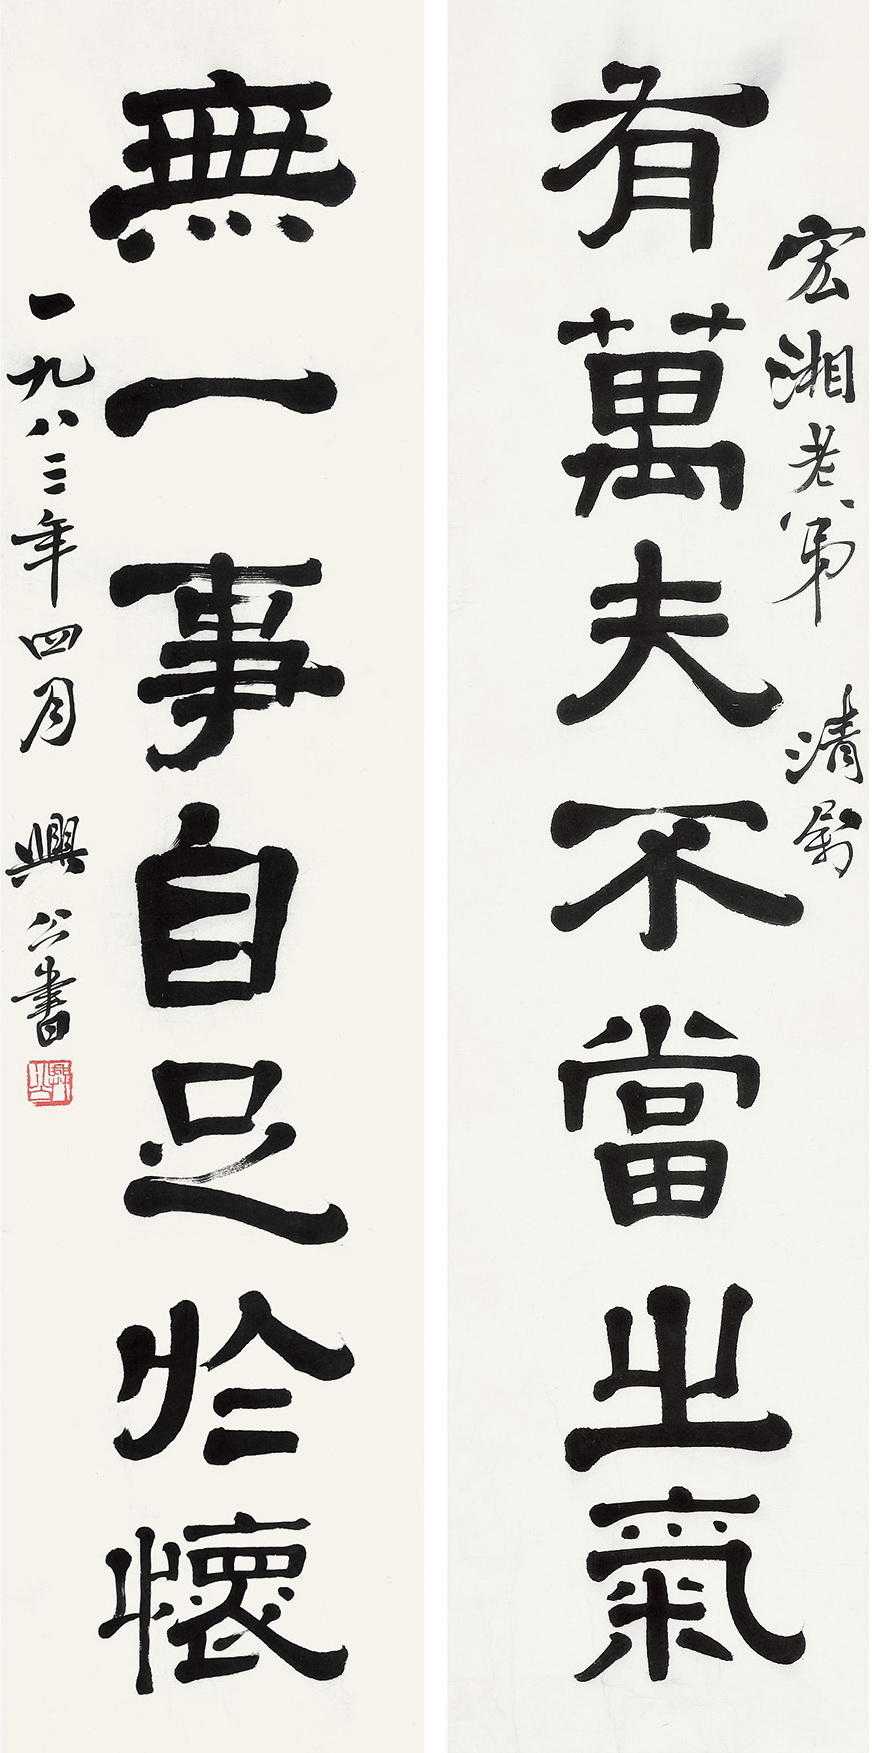 宏湘老弟 清
有萬夫不當之氣
無一事自足於懷
一九八三年四月 興公書